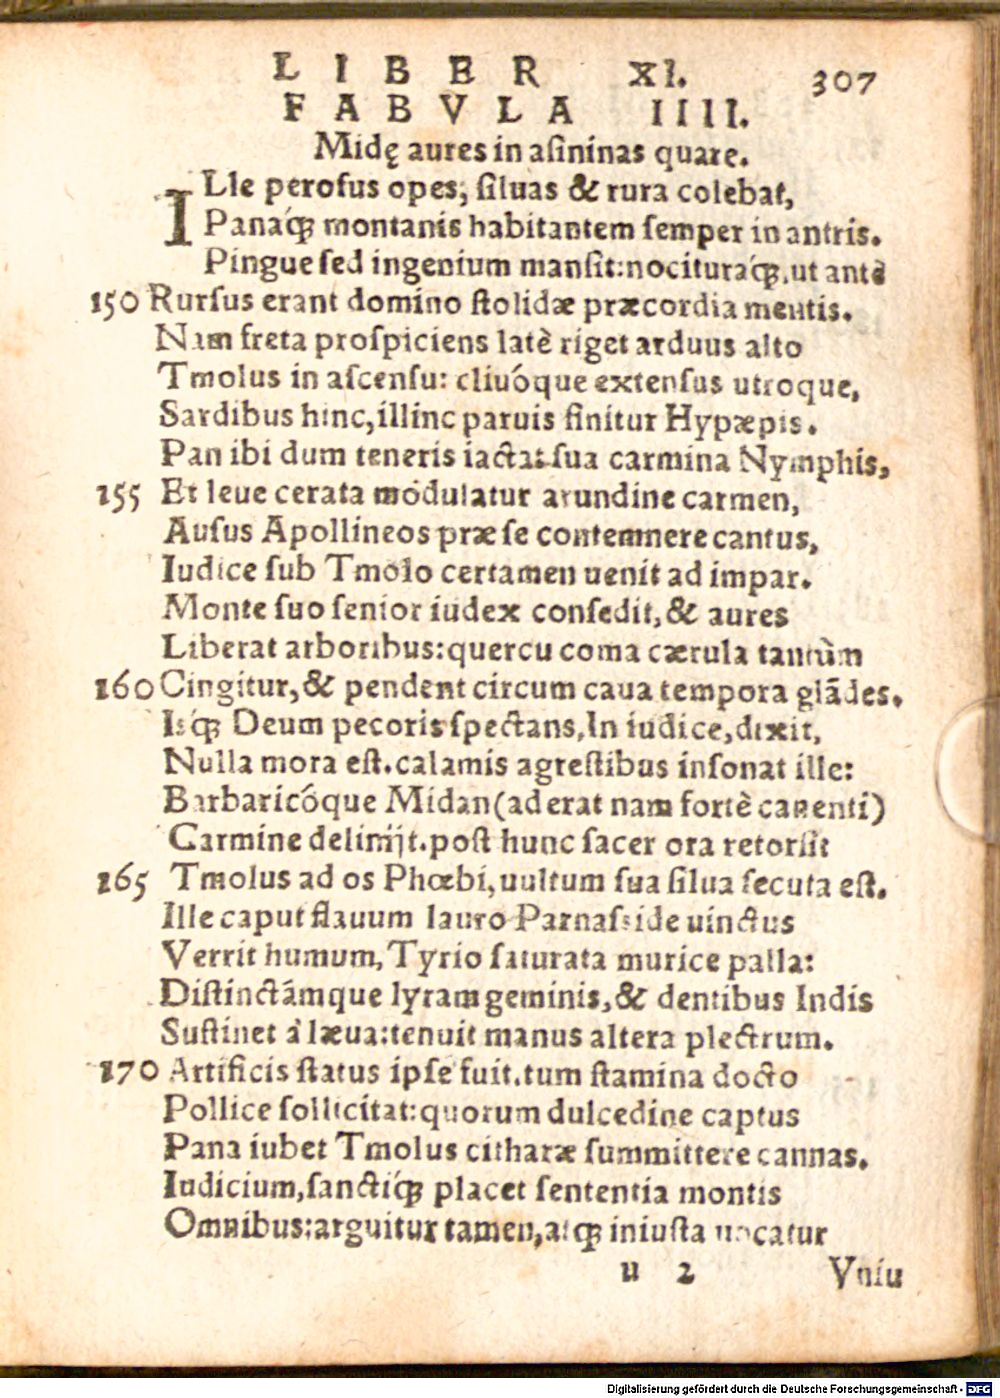 LIBER XI. 307
FABVLA IIII.
Midę aures in asininas quare.
ILle perosus opes, siluas & rura colebat,
Panaq́; montanis habitantem semper in antris.
Pingue sed ingenium mansit: nocituraq́;, ut antè
150 Rursus erant domino stolidæ præcordia mentis.
Nam freta prospiciens latè riget arduus alto
Tmolus in ascensu: cliuóque extensus utroque,
Sardibus hinc, illinc paruis finitur Hypæpis.
Pan ibi dum teneris iactat sua carmina Nymphis,
155 Et leue cerata modulatur arundine carmen,
Ausus Apollineos præ se contemnere cantus,
Iudice sub Tmolo certamen uenit ad impar.
Monte suo senior iudex consedit, & aures
Liberat arboribus: quercu coma cærula tantùm
160 Cingitur, & pendent circum caua tempora glãdes.
Isq́; Deum pecoris spectans, In iudice, dixit,
Nulla mora est. calamis agrestibus insonat ille:
Barbaricóque Midan (aderat nam fortè canenti)
Carmine delinijt. post hunc sacer ora retorsit
165 Tmolus ad os Phœbi, uultum sua silua secuta est.
Ille caput flauum lauro Parnasside uinctus
Verrit humum, Tyrio saturata murice palla:
Distinctámque lyram geminis, & dentibus Indis
Sustinet à læua: tenuit manus altera plectrum.
170 Artificis status ipse fuit. tum stamina docto
Pollice sollicitat: quorum dulcedine captus
Pana iubet Tmolus citharæ summittere cannas.
Iudicium, sanctiq́; placet sententia montis
Omnibus: arguitur tamen, atq́; iniusta uocatur
u 2 Vniu
Digitalisierung gefördert durch die Deutsche Forschungsgemeinschaft - DFG